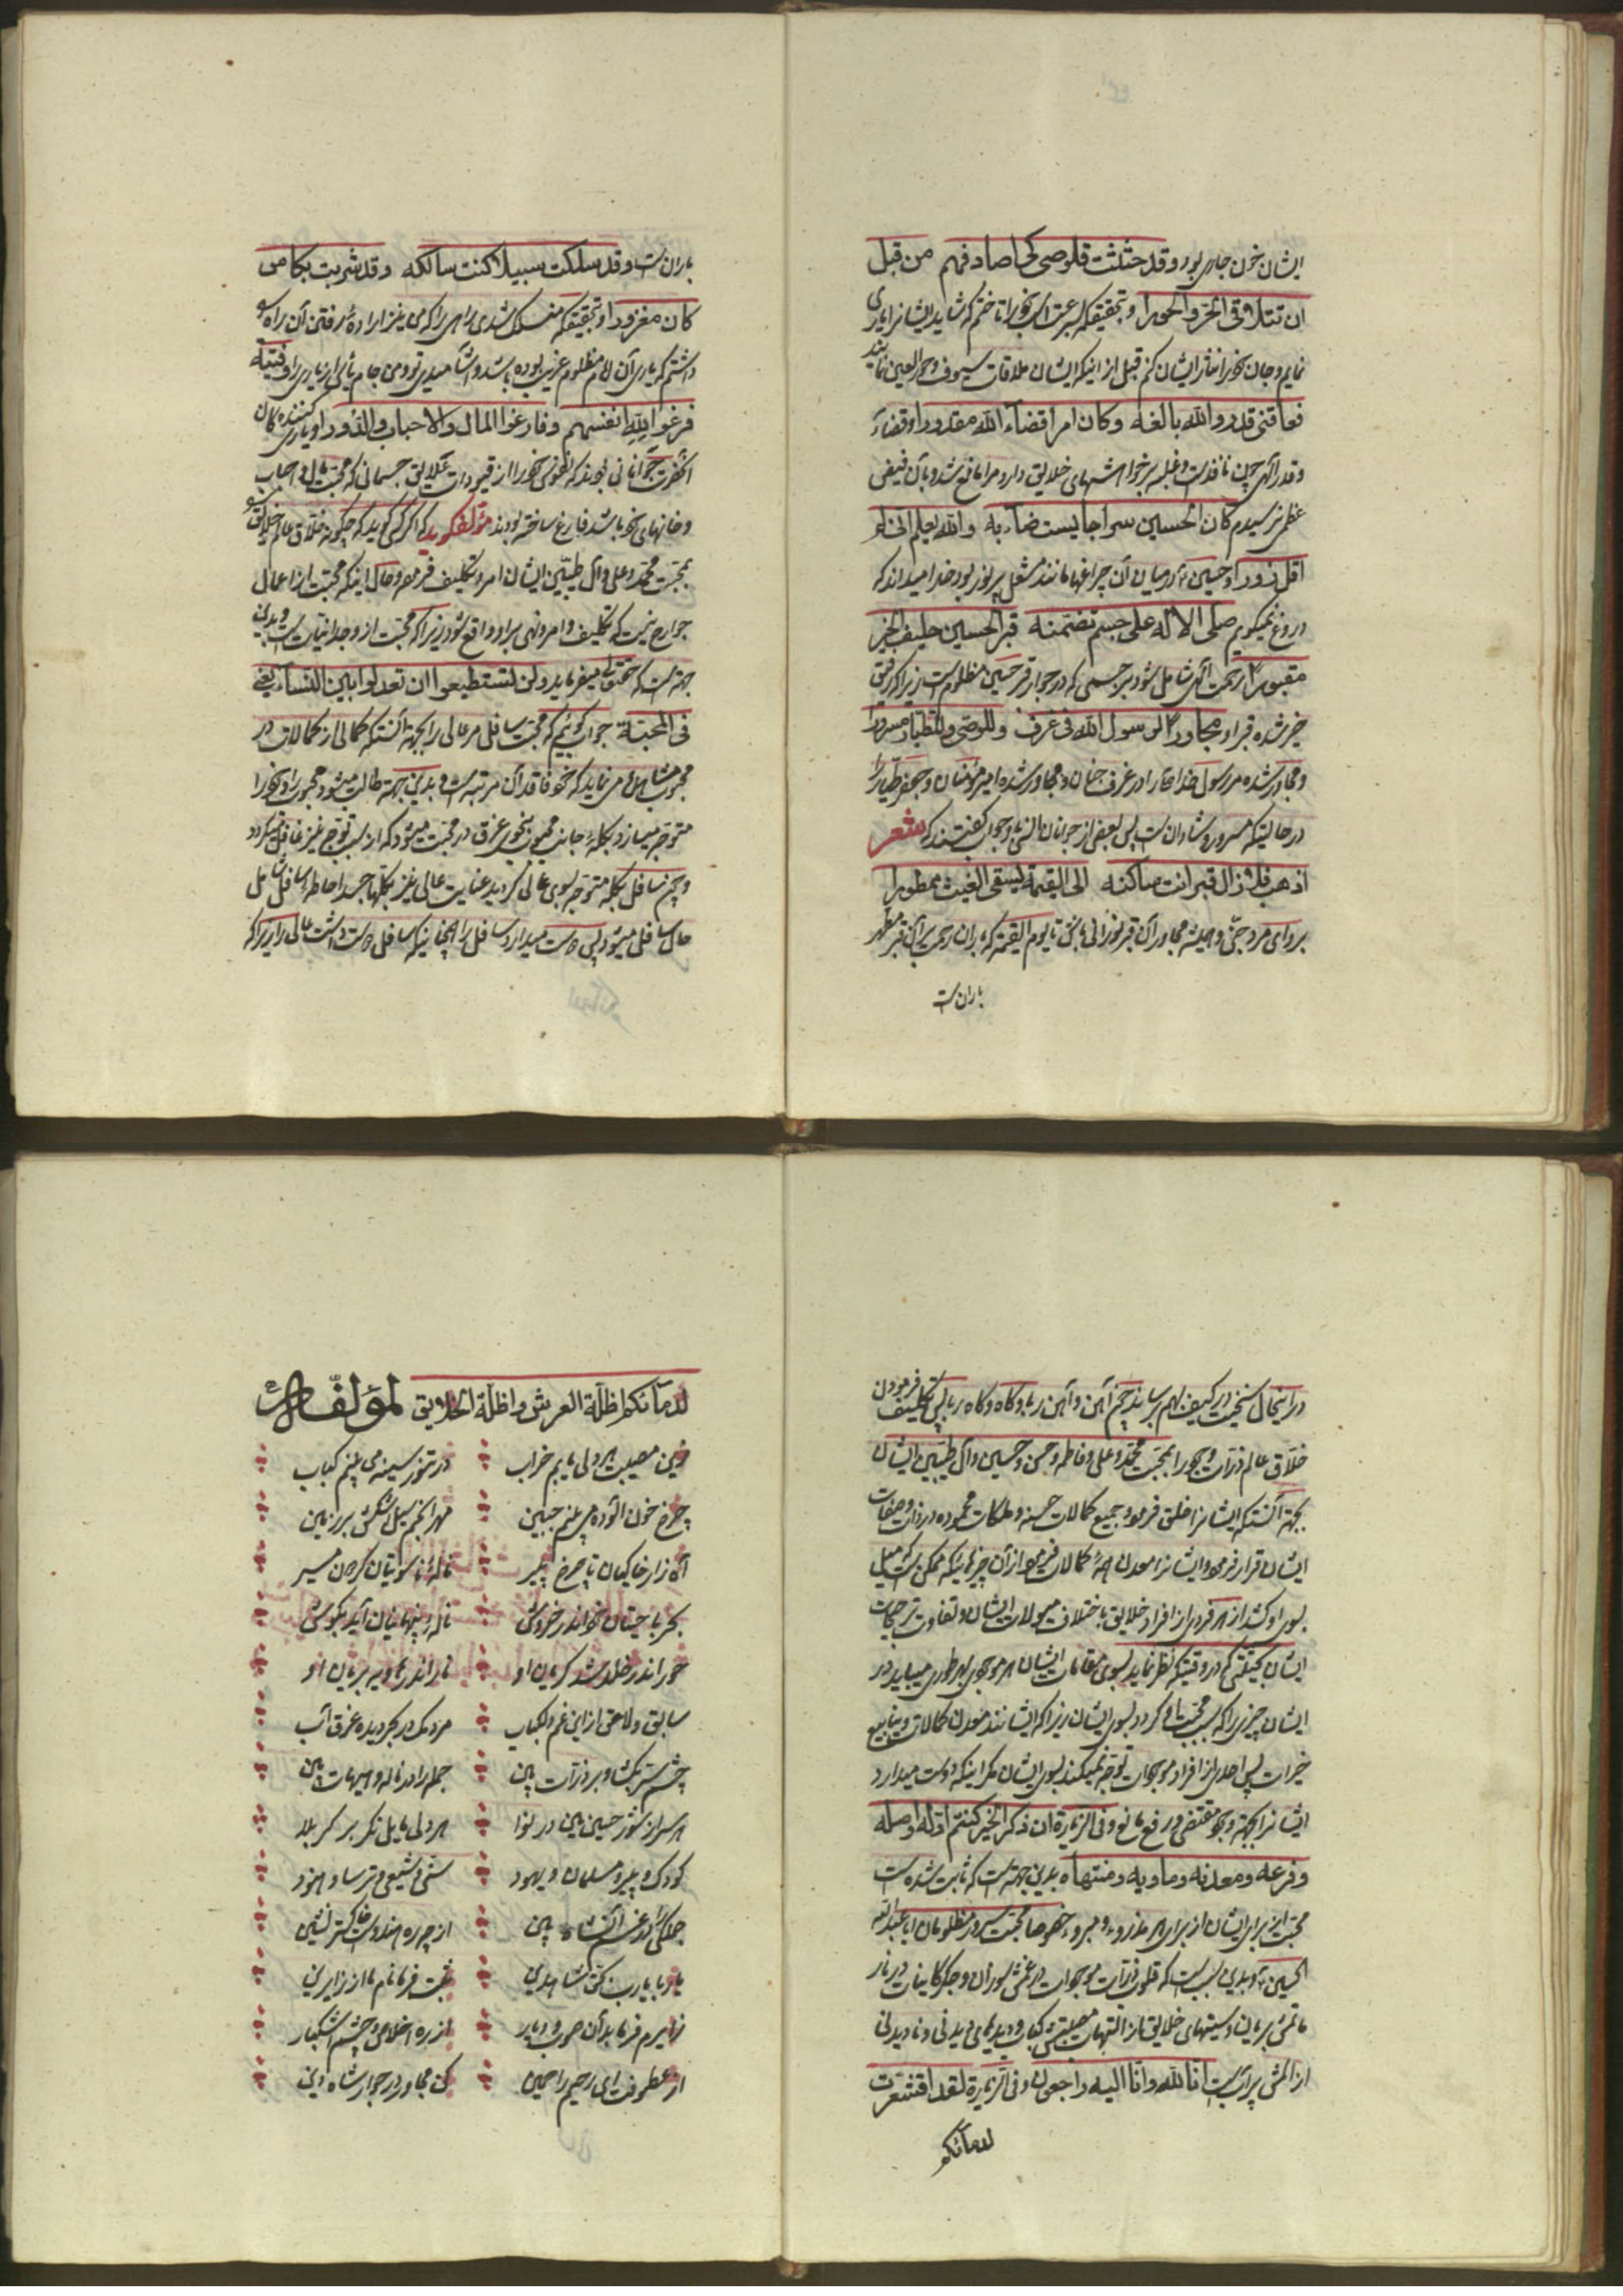 ایشان خون جاری بود وقد حثثت قلوصی کی اصادفهم من قبل
ان تتلاقی الخرد الحورا و تحقیق که بسرعت شتر خود را تاختم که شاید ایشانرا یاری
نمایم و جان خود را نثار ایشان کنم قبل از اینکه ایشان ملاقات سیوف و حور العین نمایند
فعاقنی قدر والله بالغه وکان امرا قضاء الله مقدورا و قضاء
و قدر الهی چون نافذ است و غلبه بر خواهشهای خلایق دارد مرا مانع شد و بآن فیض
عظمی نرسیدم کان الحسین سراجا یستضاء به والله یعلم انی لم
اقل زورا و حسین در میان آن چراغها مانند مشعل پر نور بود خدا میداند که
دروغ نمیگویم صلی الاله علی جسم تضمنه قبر الحسین حلیف الخیر
مقبورا رحمت الهی شامل شود بر جسمی که در جوار قبر حسین مظلوم است زیرا که رفیق
خیر شده قبر او مجاورا لرسول الله فی غرف وللوصی وللطیار مسرورا
و مجاور شده مر رسول خدا را در غرف جنان و مجاور شده امیر مؤمنان و جعفر طیار را
در حالتیکه مسرور و شادان است پس بعضی از جوانان انسی در جواب گفتند که شعر
اذهب فلا زال قبر انت ساکنه الی القیمة یسقی الغیث ممطورا
برو ای مرد جنی و همیشه مجاور آن قبر نورانی باش تا یوم القیمة که باران رحمت بر آن قبر مطهر
باران است
باران است وقد سلکت سبیلا کنت سالکه وقد شربت بکاس
کان مغزورا و تحقیق که منسلک شدی راهی را که من نیز اراده رفتن آن راه
داشتم که یاری آن امام مظلوم غریب بوده باشد و آشامیدی تو و من جام یأس از یاری را وفتیة
فرغوا لله انفسهم وفارغوا المال والاحباب والدورا و یاری کننده‌گان
آنحضرت جوانانی بودند که نفوس خود را از قیودات علایق جسمانی که محبت مال و احباب
و خانهای خود باشد فارغ ساخته بودند مؤلف گوید که اگر کسی گوید که چگونه خلاق عالم خلایق
بمحبت محمد و علی و آل طیبین ایشان امر و تکلیف فرموده و حال اینکه محبت از اعمال
جوارح نیست که تکلیف و امر و نهی بر او واقع شود زیرا که محبت از وجدانیات است و بدین
جهت است که حقتعالی میفرماید ولن تستطیعوا ان تعدلوا بین النساء یعنی
فی المحبة جواب گوئیم که محبت سافل مر عالی را بجهة آنستکه کمالی از کمالات در
محبوب مشاهده می نماید که خود فاقد آن مرتبه است و بدین جهة طالب میشود محبوب را و خود را
متوجه میسازد بکله بجانب محبوب بنحوی غرق در محبت میشود که از سبب توجه نیز غافل میگردد
و چون سافل بکله متوجه بسوی عالی گردید عنایت عالی نیز بکلها جسد احاطه سافل شامل
حال سافل میشود پس دوست میدارد سافل را همچنانکه سافل دوست داشت عالی را زیرا که
در اینحال سنخیت در کیف بهم میرسانند چون آهن و آهن ربا و کاه و کاه ربا پس تکلیف فرمودن
خلاق عالم ذرات وجود را بمحبت محمد و علی و فاطمه و حسن و حسین و آل طیبین ایشان
بجهة آنستکه ایشانرا خلق فرمود و جمیع کمالات حسنه و ملکات محموده در ذات و صفات
ایشان قرار فرمود و ایشانرا معدن همه کمالات فرمود از آن چیزهائیکه ممکن است که میل
بسوی او کند از هر فردی از افراد خلایق باختلاف میولات ایشان و تفاوت ترجیحات
ایشان بحیثیتی که در وقتیکه نظر نماید بسوی مقامات ایشان هر موجودی بهر طوری مییابد در
ایشان چیزی را که سبب محبت او گردد بسوی ایشان زیرا که ایشانند معدن کمالات و ینابیع
خیرات پس احدی از افراد موجودات توجه نمیکند بسوی ایشان مگر اینکه دوست میدارد
ایشانرا بجهة وجود مقتضی و رفع مانع وفی الزیارة ان ذکر الخیر کنتم اوله واصله
وفرعه ومعدنه وماویه ومنتهاه بدین جهة است که ثابت شده است
محبت از برای ایشان از برای هر مذروء و مبروء خصوصا محبت سرور مظلومان ابا عبدالله
الحسین و بدین سبب است که قلوب ذرات موجودات در غمش سوزان و جگر کاینات در نار
ماتمش بریان و سینهای خلایق از التهاب مصیبتش کباب و دیدهای دیدنی و نادیدنی
از المش پر آبست انا لله وانا الیه راجعون وفی الزیارة لقد اقشعرت
لدمائکم
لدمائکم اظلة العرش واظلة الخلایق لمؤلفه
زین مصیبت هر دلی یابم خراب در تنور سینه می بینم کباب
چرخ خون آلوده می بینم جبین مهر انجم سیل اشکش بر زمین
آه زار خاکیان تا چرخ پیر ناله ناسوتیان گردون مسیر
بحر با حیتان خود اندر خروش ناله پنهانیان آید بگوش
حور اندر خلد شد گریان او نار اندر هاویه بریان او
سابق و لاحق از این غم دلکباب مردمک در بحر دیده غرق آب
چشم سر بگشا و بر ذرات بین جمله را در ناله و هیهات بین
هر سری از شور حسین بین در نوا هر دلی مایل نگر بر کربلا
کودک و پیر و مسلمان و یهود سنی و شیعی و ترسا و هنود
جملگی را در غم آنشاه بین از چه ره هندوست خاکستر نشین
یا ربا یا رب بحق شاهدین ثبت فرما نام ما از زایرین
زایرم فرما بدآن صوب و دیار از ره اخلاص و چشم اشکبار
از عطوفت ای رحیم راحمین کن مجاور در جوار شاه دین